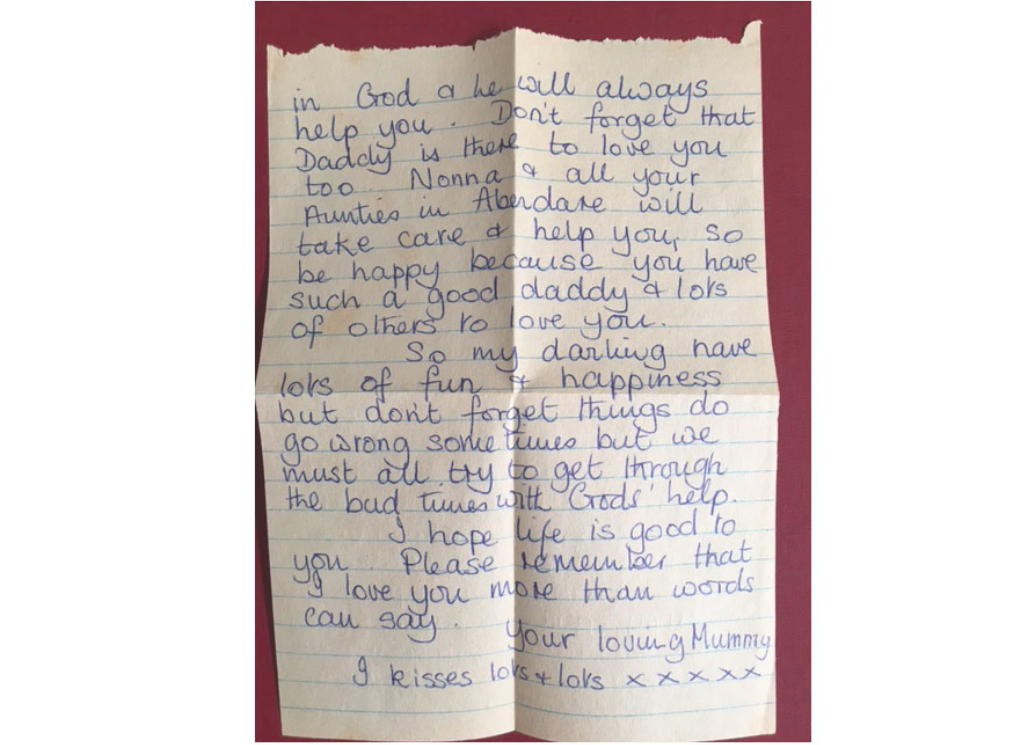 in God & he will always
help you. Don't forget that
Daddy is there to love you
too. Nonna & all your
Aunties in Aberdare will
take care & help you, so
be happy because you have
such a good daddy & lots
of others to love you.
So my darling have
lots of fun & happiness
but don't forget things do
go wrong sometimes but we
must all try to get through
the bad times with Gods' help.
I hope life is good to
you. Please remember that
I love you more than words
can say. Your loving Mummy
I kisses lots & lots x x x x x